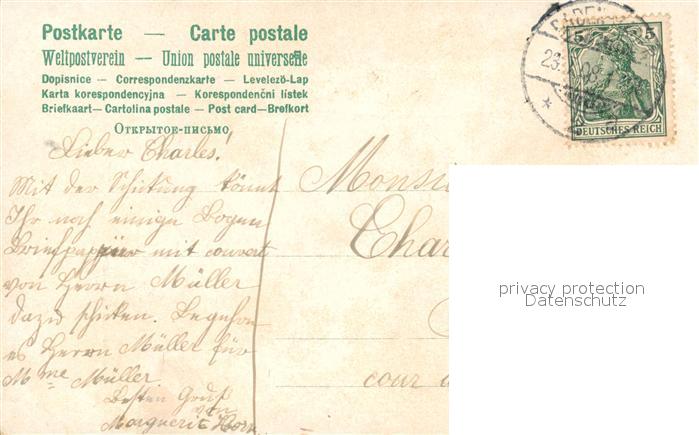 Postkarte — Carte postale
Weltpostverein — Union postale universelle
Dopisnice — Correspondenzkarte — Levelezö-Lap
Karta korespondencyjna — Korespondenční lístek
Briefkaart — Cartolina postale — Post card — Brefkort
Открытое-письмо
Lieber Charles!
Mit der Schickung könnt
Ihr noch einige Bogen
Briefpapier mit couvert
von Herrn Müller
dazu schicken.
es Herrn Müller für
Mme Müller.
Besten Gruß
von
Marguerite
cour
5 5
DEUTSCHES REICH
BADEN
privacy protection
Datenschutz